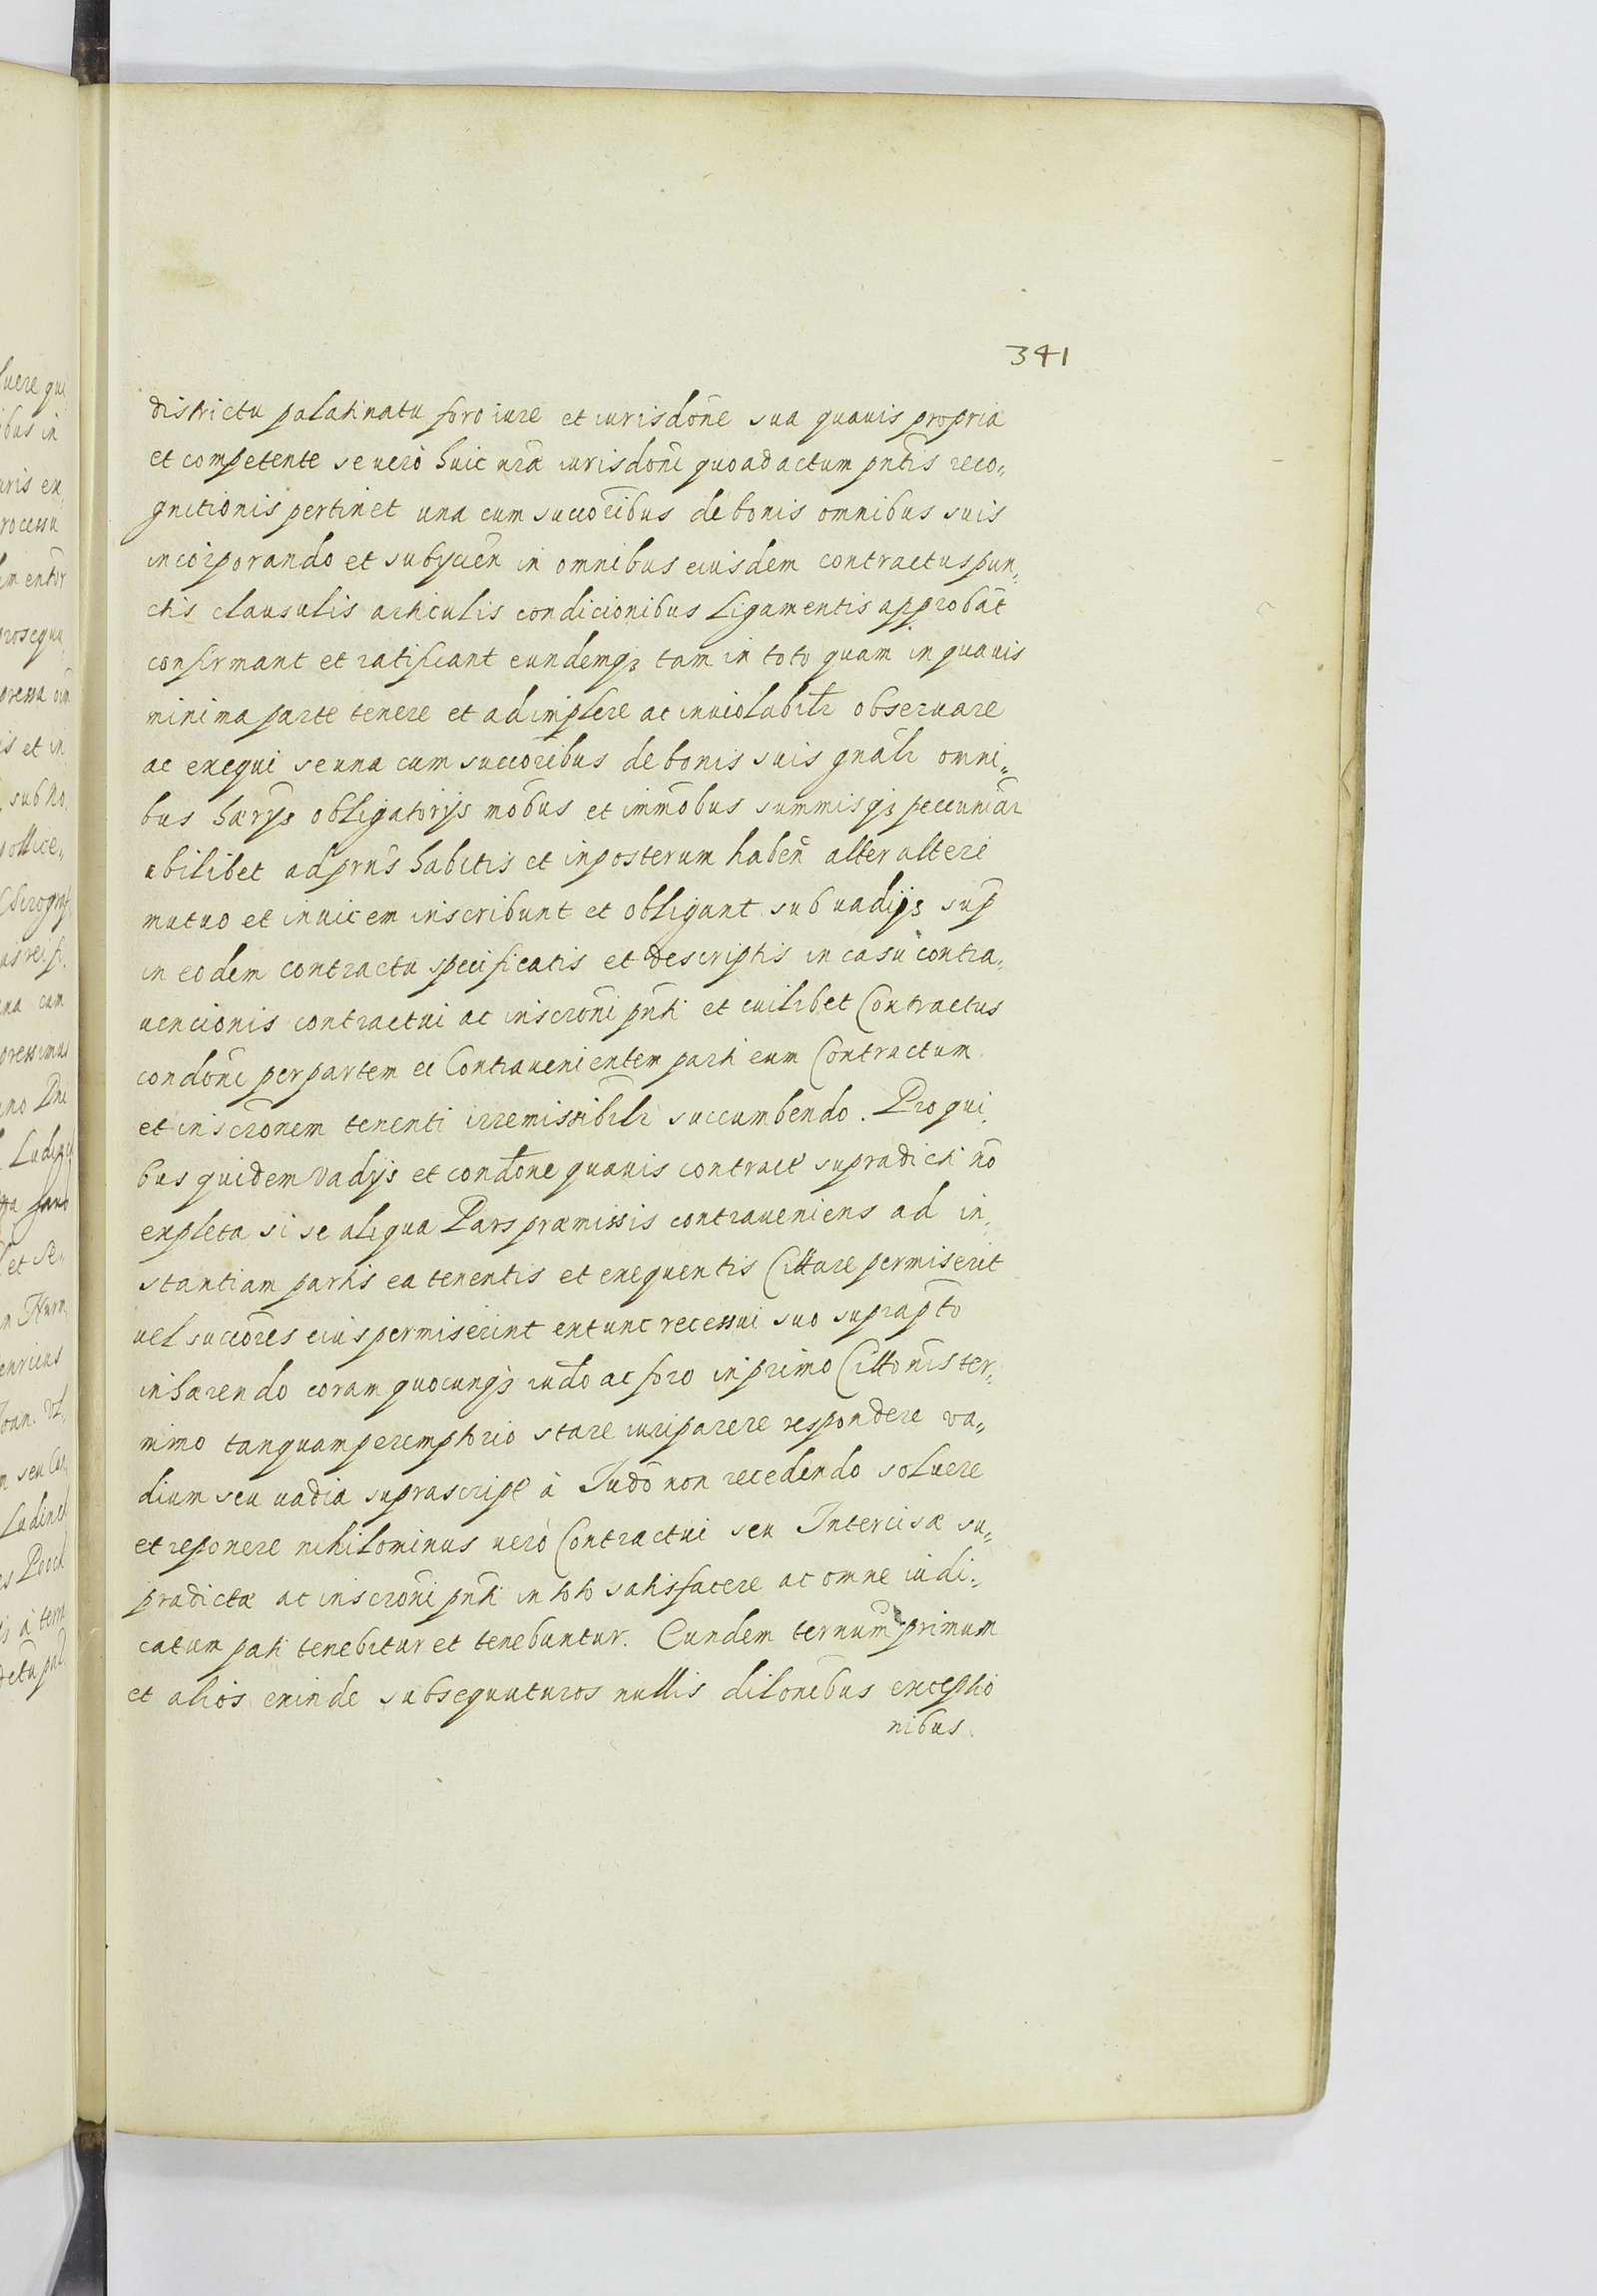 341
districtu palatinatu foro iure et iurisdōne sua quauis propria
et competente se uerò huic nrã iurisdōni quoad actum pntĩs reco„
gnitionis pertinet una cum succoribus de bonis omnibus suis
incorporando et subÿcieñ in omnibus eiusdem contractus pun„
ctis clausulis articulis condicionibus Ligamentis approbãt
confirmant et ratificant eundemqз tam in toto quam in quauis
minima parte tenere et adimplere ac inuiolabiltr obseruare
ac exequi se una cum succoribus de bonis suis gnãlr omni„
bus hærÿs obligatorÿs mobus et immobus summisqз peccuniar
ubilibet ad prns habitis et inposterum habeñ alter alteri
mutuo et inuicem inscribunt et obligant sub uadÿs sup
in eodem contractu specificatis et descriptis in casu contra„
uencionis contractui ac inscrõni pnti et cuilibet Contractus
condōni per partem ei Contrauenientem parti eum Contractum
et inscronem tenenti irremissibilr succumbendo. Pro qui„
bus quidem vadÿs et condone quauis contract supradicti nō
expleta si se aliqua Pars præmissis contraueniens ad in„
stantiam partis ea tenentis et exequentis Cittare permiserit
uel succores eius permiserint extunc recessui suo suprapto
inhærendo coram quocunqз iudo ac foro in primo Cittonis ter„
mino tanquam peremptorio stare iuri parere respondere va„
dium seu uadia suprascript à Judo non recedendo soluere
et reponere nihilominus uerò Contractui seu Intercisæ su„
pradictæ ac inscrõni pnti in toto satisfacere ac omne iudi„
catum pati tenebitur et tenebuntur. Eundem ternum primum
et alios exinde subsequuturos nullis dilonibus exceptio
nibus